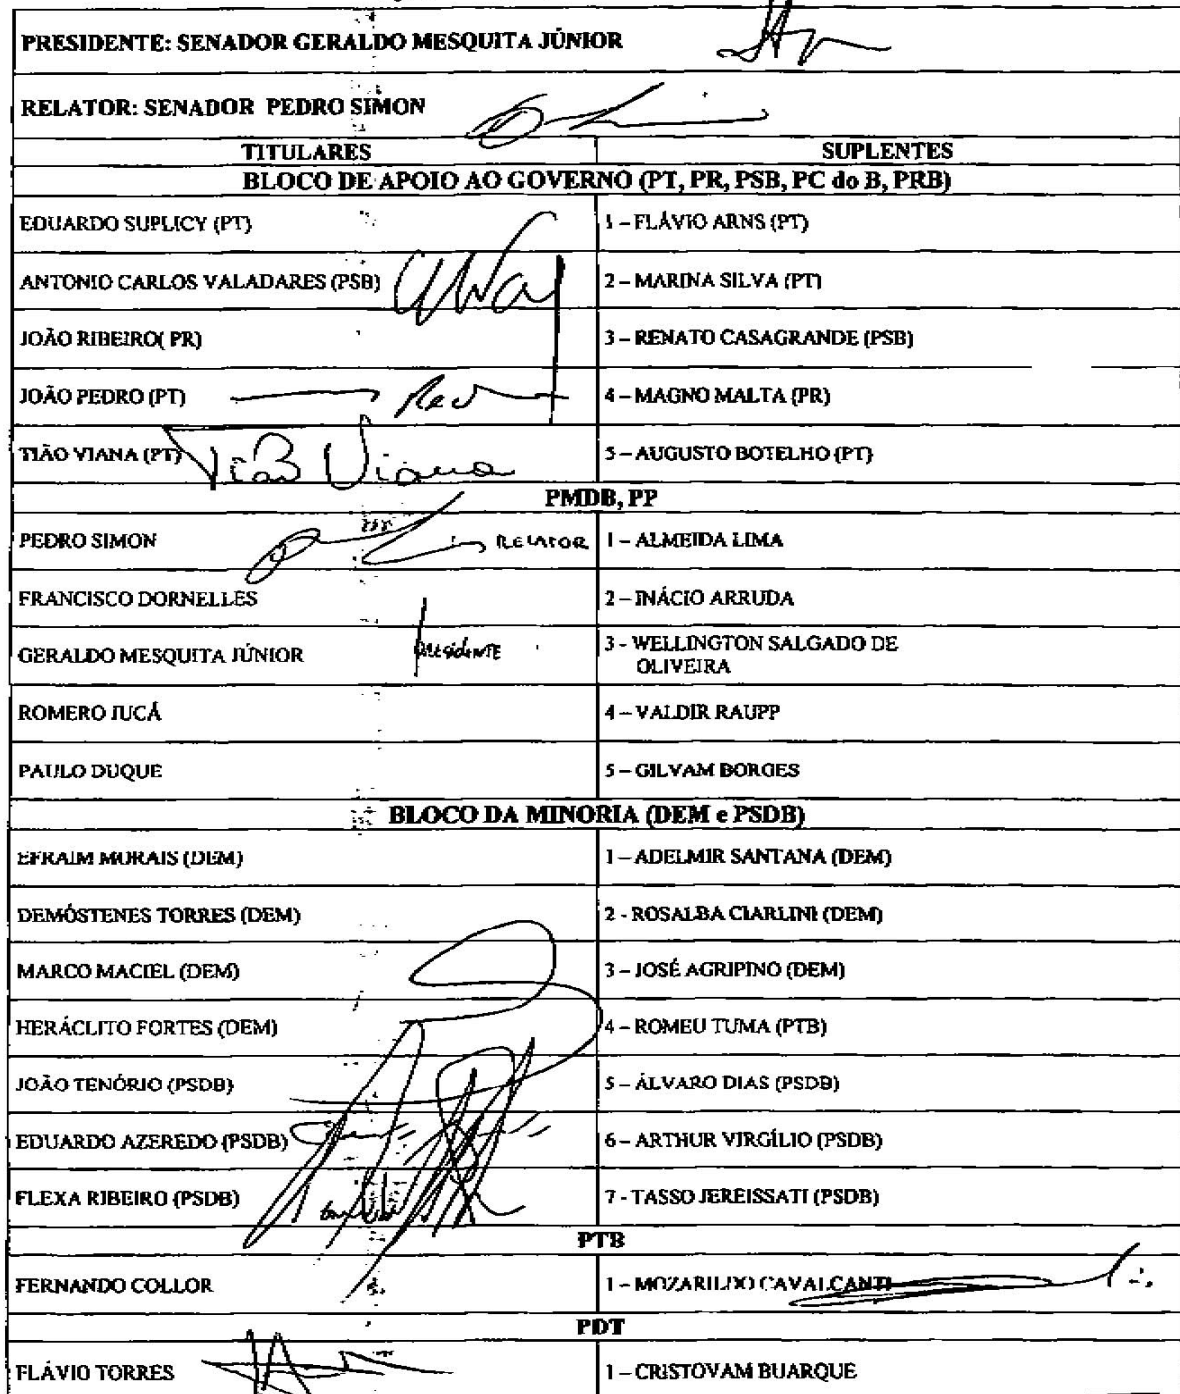 PRESIDENTE: SENADOR GERALDO MESQUITA JÚNIOR
RELATOR: SENADOR PEDRO SIMON
TITULARES SUPLENTES
BLOCO DE APOIO AO GOVERNO (PT, PR, PSB, PC do B, PRB)
EDUARDO SUPLICY (PT) 1 – FLÁVIO ARNS (PT)
ANTONIO CARLOS VALADARES (PSB) 2 – MARINA SILVA (PT)
JOÃO RIBEIRO( PR) 3 – RENATO CASAGRANDE (PSB)
JOÃO PEDRO (PT) 4 – MAGNO MALTA (PR)
TIÃO VIANA (PT) Tião Viana 5 – AUGUSTO BOTELHO (PT)
PMDB, PP
PEDRO SIMON RELATOR 1 – ALMEIDA LIMA
FRANCISCO DORNELLES 2 – INÁCIO ARRUDA
GERALDO MESQUITA JÚNIOR presidente 3 - WELLINGTON SALGADO DE
OLIVEIRA
ROMERO JUCÁ 4 – VALDIR RAUPP
PAULO DUQUE 5 – GILVAM BORGES
BLOCO DA MINORIA (DEM e PSDB)
EFRAIM MORAIS (DEM) 1 – ADELMIR SANTANA (DEM)
DEMÓSTENES TORRES (DEM) 2 - ROSALBA CIARLINI (DEM)
MARCO MACIEL (DEM) 3 – JOSÉ AGRIPINO (DEM)
HERÁCLITO FORTES (DEM) 4 – ROMEU TUMA (PTB)
JOÃO TENÓRIO (PSDB) 5 – ÁLVARO DIAS (PSDB)
EDUARDO AZEREDO (PSDB) 6 – ARTHUR VIRGÍLIO (PSDB)
FLEXA RIBEIRO (PSDB) 7 - TASSO JEREISSATI (PSDB)
PTB
FERNANDO COLLOR 1 – MOZARILDO CAVALCANTI
PDT
FLÁVIO TORRES 1 – CRISTOVAM BUARQUE